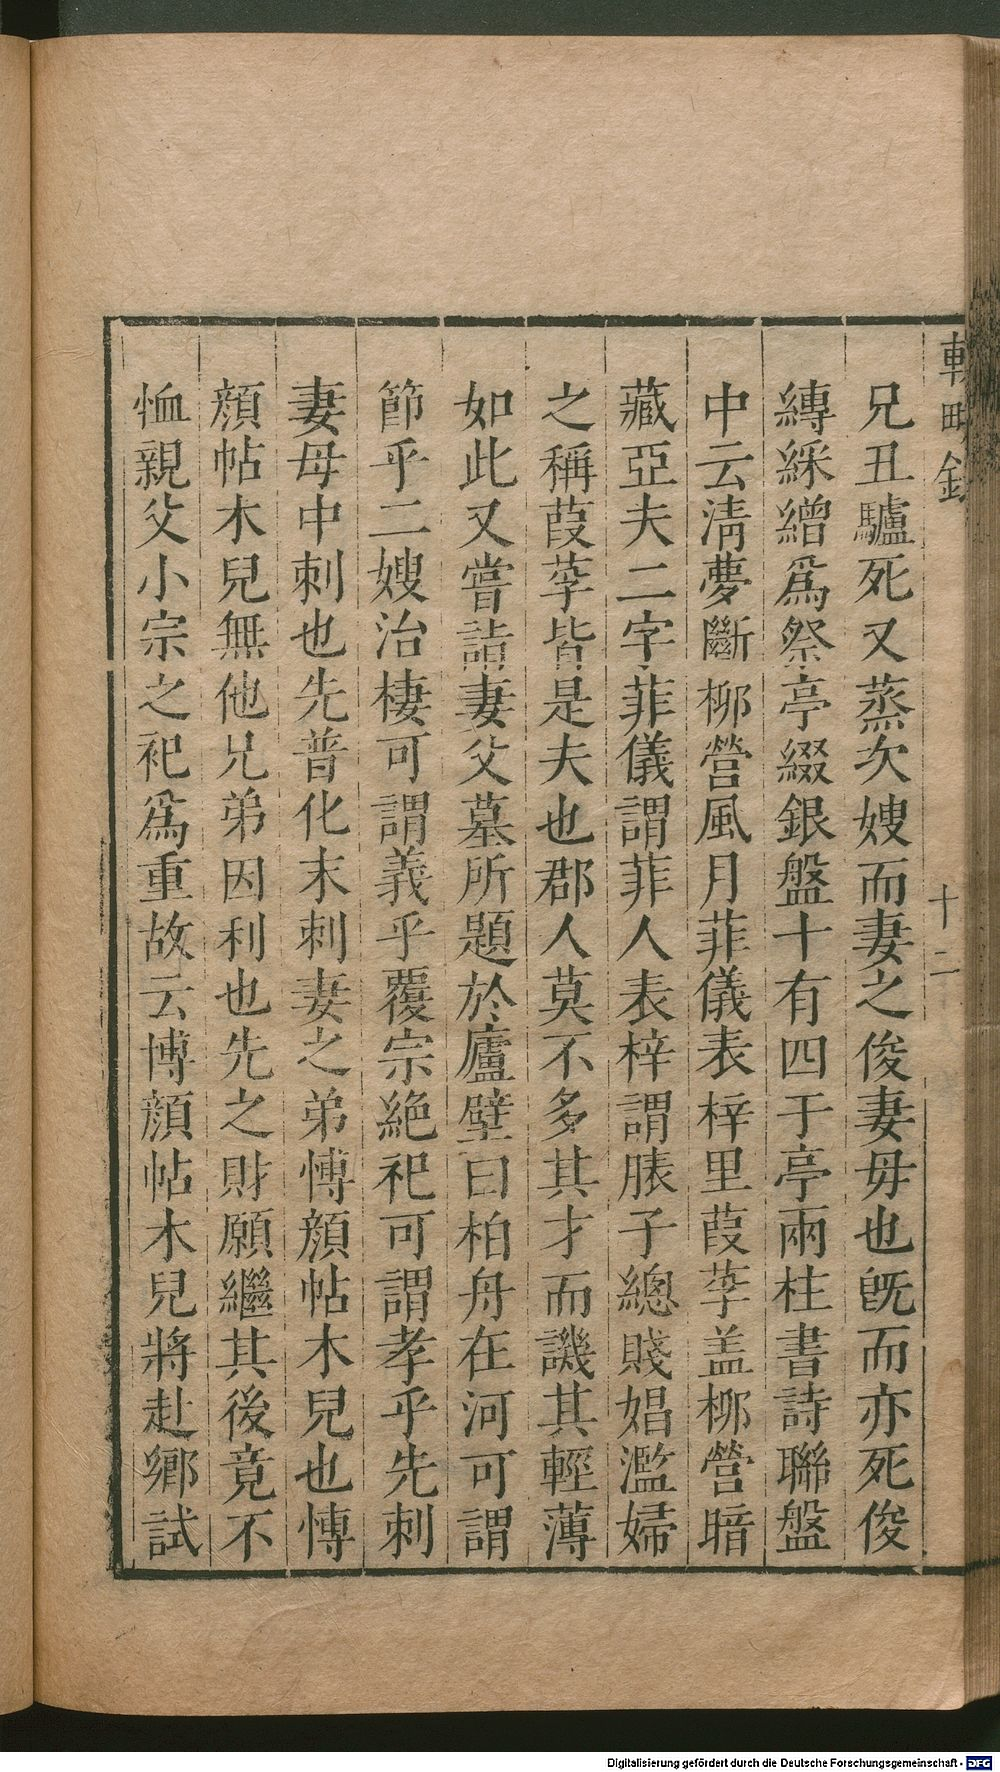 輟畊錄
十二
兄丑驢死又蒸次嫂而妻之俊妻母也旣而亦死俊
縳綵繒爲祭亭綴銀盤十有四于亭兩柱書詩聯盤
中云淸夢斷柳營風月菲儀表梓里葭莩盖柳營暗
藏亞夫二字菲儀謂菲人表梓謂脿子總賤娼濫婦
之稱葭莩皆是夫也郡人莫不多其才而譏其輕薄
如此又嘗詣妻父墓所題於廬壁曰柏舟在河可謂
節乎二嫂治棲可謂義乎覆宗絶祀可謂孝乎先刺
妻母中刺也先普化末刺妻之弟愽顔帖木兒也愽
顔帖木兒無他兄弟因利也先之財願繼其後竟不
恤親父小宗之祀爲重故云博顔帖木兒將赴鄉試
Digitalisierung gefördert durch die Deutsche Forschungsgemeinschaft - DFG